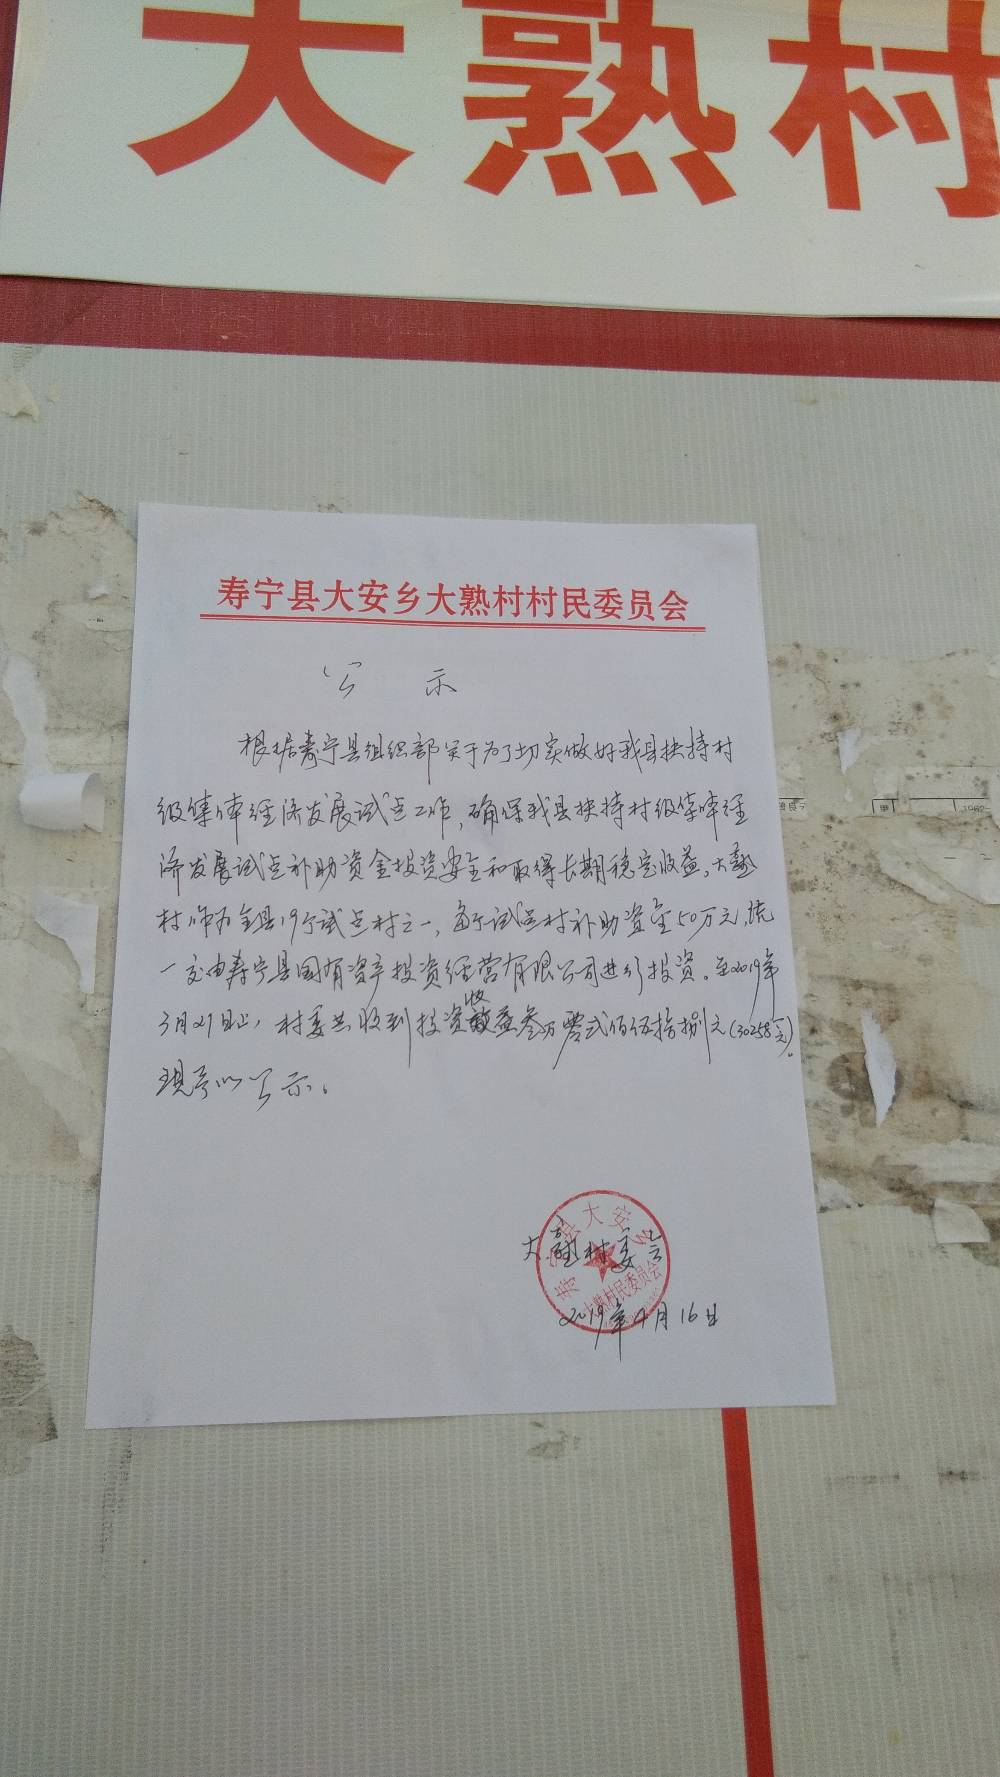 大熟村
寿宁县大安乡大熟村村民委员会
公 示
根据寿宁县组织部关于为了切实做好我县扶持村
级集体经济发展试点工作,确保我县扶持村级集体经
济发展试点补助资金投资安全和取得长期稳定收益。大熟
村作为全县19个试点村之一,每个试点村补助资金50万元,统
一交由寿宁县国有资产投资经营有限公司进行投资。至2019年
3月21日止,村委共收到投资收益叁万零贰佰伍拾捌元(30258元)。
现予以公示。
大熟村委会
寿宁县大安乡
大熟村民委员会
2019年4月16日